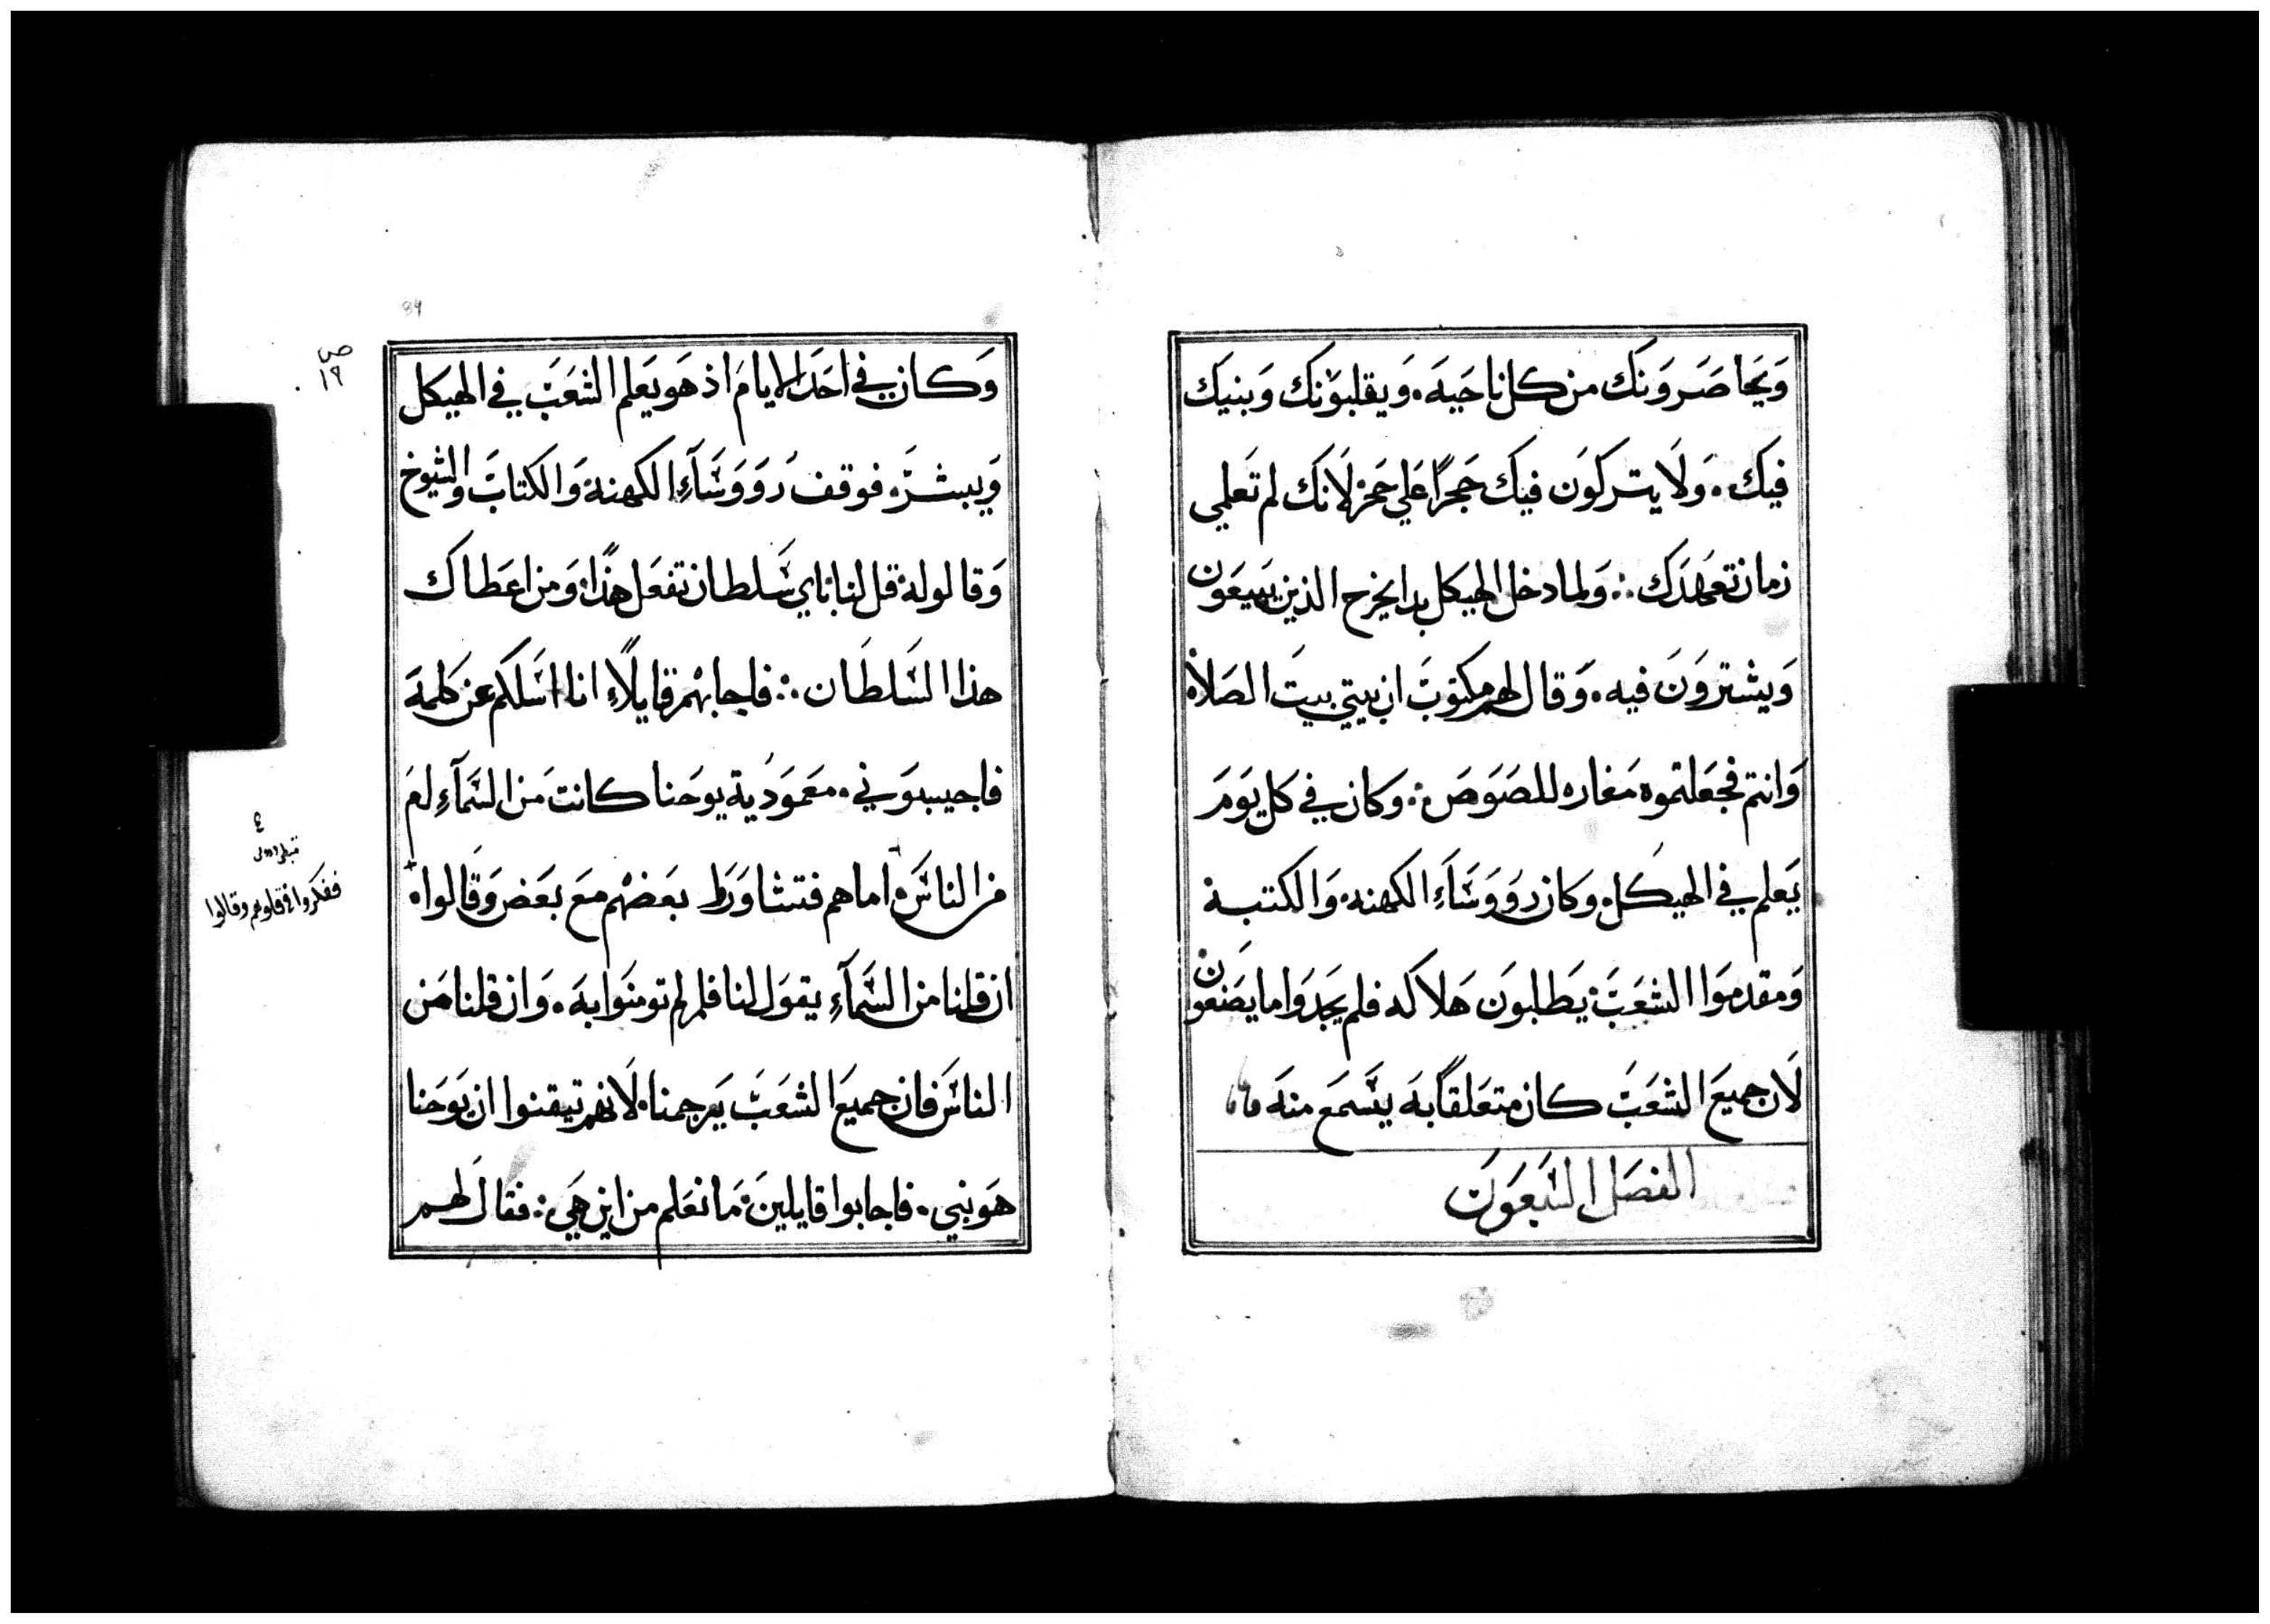 وَيحَاصَروَنك من كل ناحَيهَ. وَيقلبوَنك وَبنيك
فيك. وَلَا يتركوَن فيك حَجرًا عَلي حَجر لَانك لم تَعلمي
زمان تعَهدَك ∴ وَلما دخل الهيكل بدا يخرج الذين يبيعَون
وَيشتروَنَ فيه. وَقال لهم مكتوبَ ان بيتي بيتَ الصَلاه
وَانتم فجعَلتموه مَغاره للصَوَصَ: وكان في كل يوَمَ
يَعلم في الهيكل. وكان روَوَسَآءِ الكهنه وَالكتبة
وَمقدموَا الشعَبَ: يَطلبون هَلاكه فلم يجدوَا ما يصَنعَون
لَان جميعَ الشعَبَ كان متعَلقًا بهَ يسَمَع منهَ
الفصَل السَبعَوَن
84
وَكان في احَد الايامَ اذ هَو يعَلم الشعَبَ في الهيكل
وَيبشرَ. فوقف روَوَسَآءِ الكهنة وَالكتابَ وَالشيوخ
وَقالوا له قل لنا باي سَلطان تفعَل هذَا وَمن اعَطاك
هذا السَلطَان ∴ فاجابهم قايلًا انا اسَلكم عَن كلمهَ
فاجيبوَني. معَموَدية يوحَنا كانت مَن السَمآءِ امَ
من الناسَ. اما هم فتشاوَرَوا بعَضهم مَع بعَض وَقالوا
ان قلنا من السَمآءِ يقوَل لنا فلم لم تومنوَا بهَ. وَان قلنا مَن
الناسَ فان جميعَ الشعَبَ يرجمنا. لَانهم تيقنوا ان يوَحَنا
هَو نبي. فاجابوا قايلينَ: مَا نعَلم من اين هَي: فقال لَهم
ص
١٩
ففكروا في قلوبهم وقالوا